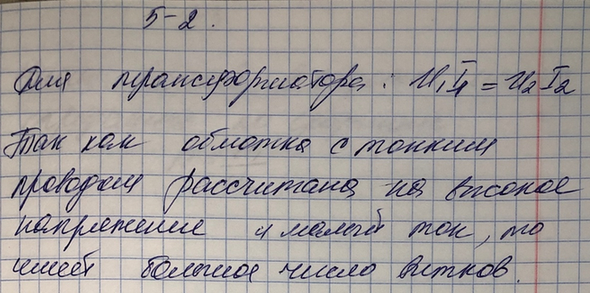 5-2.
Для трансформатора: U₁I₁ = U₂I₂
Так как обмотка с тонким
проводом рассчитана на высокое
напряжение и малый ток, то
имеет большое число витков.